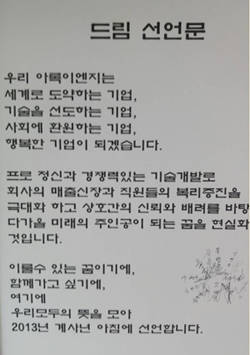 드림 선언문
우리 아록이엔지는
세계로 도약하는 기업,
기술을 선도하는 기업,
사회에 환원하는 기업,
행복한 기업이 되겠습니다.
프로 정신과 경쟁력있는 기술개발로
회사의 매출신장과 직원들의 복리증진을
극대화 하고 상호간의 신뢰와 배려를 바탕
다가올 미래의 주인공이 되는 꿈을 현실화
것입니다.
이룰수 있는 꿈이기에,
함께가고 싶기에,
여기에
우리모두의 뜻을 모아
2013년 계사년 아침에 선언합니다.